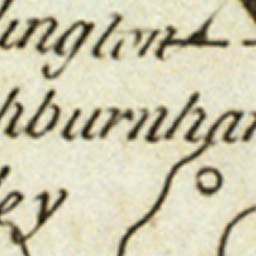 lington
hburnha
ley